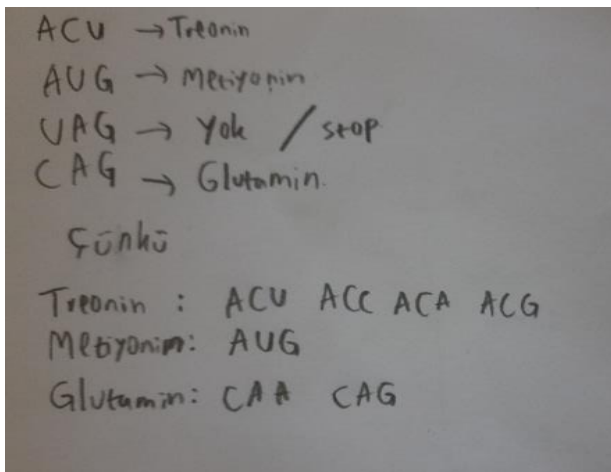 ACU → Treonin
AUG → Metiyonin
UAG → Yok / stop
CAG → Glutamin.
Çünkü
Treonin : ACU ACC ACA ACG
Metiyonin: AUG
Glutamin: CAA CAG